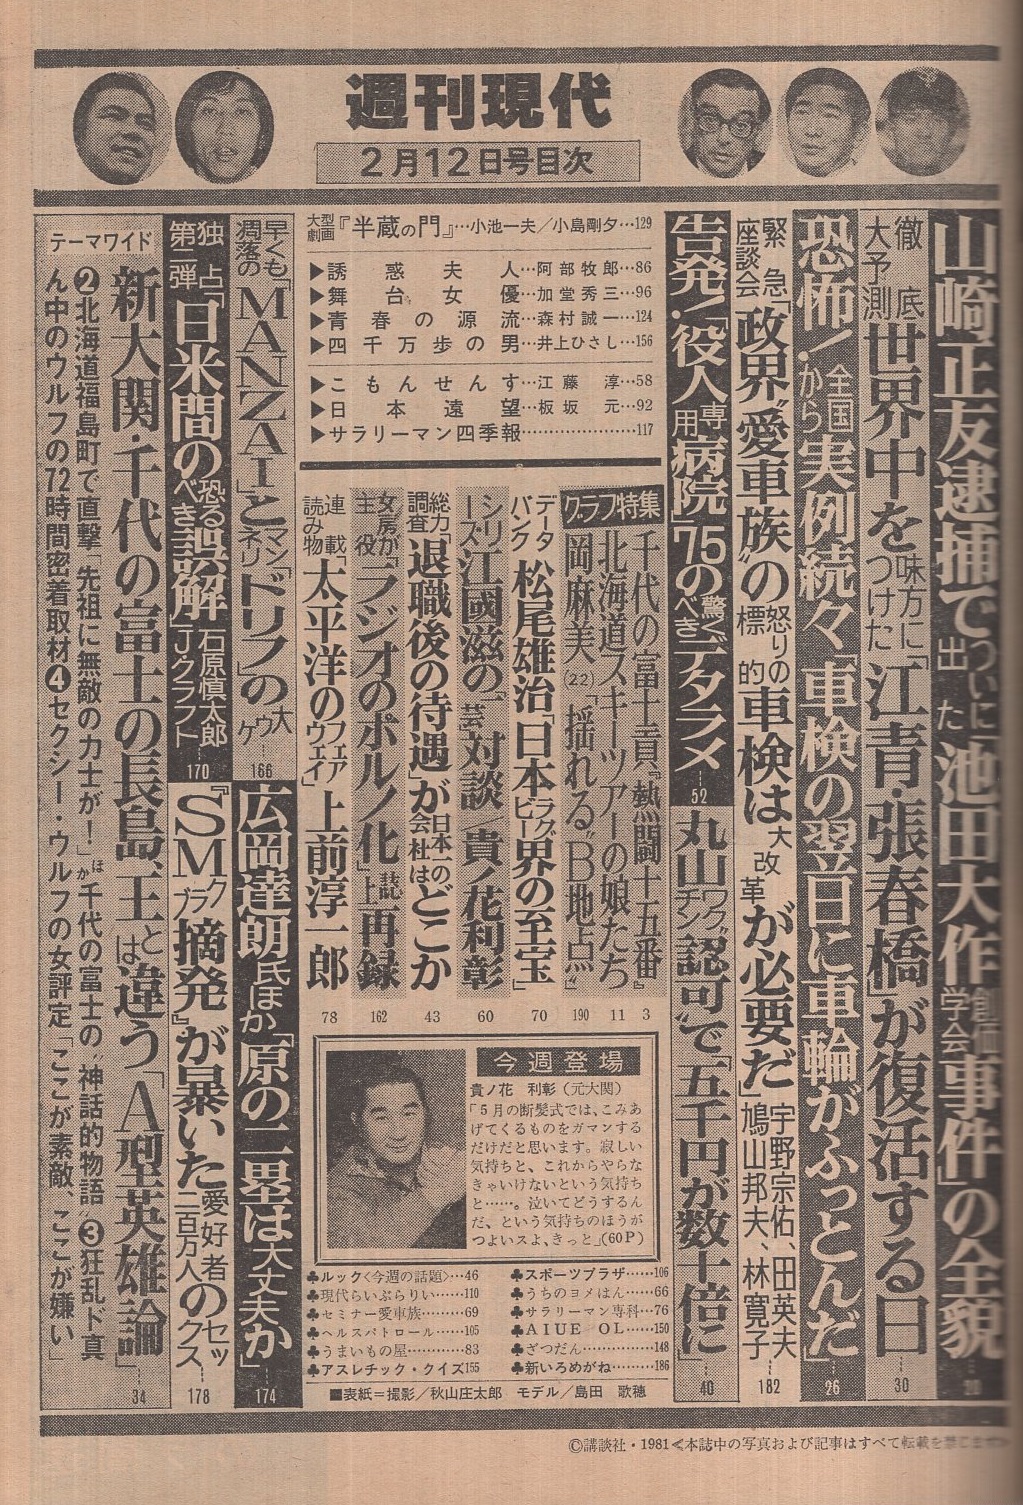 週刊現代
2月12日号目次
山崎正友逮捕でついに出た「池田大作創価学会事件」の全貌
徹底大予測 世界中を味方につけた「江青・張春橋」が復活する日…30
恐怖!全国から実例続々「車検の翌日に車輪がふっとんだ」…26
緊急座談会「政界“愛車族”の怒りの標的 車検は大改革が必要だ」宇野宗佑、田英夫、鳩山邦夫、林寛子…182
告発!「役人専用病院」75の驚くべきデタラメ…52
丸山ワクチン“認可”で「五千円が数十倍に」…40
大型劇画『半蔵の門』…小池一夫/小島剛夕…129
▶誘惑夫人…阿部牧郎…86
▶舞台女優…加堂秀三…96
▶青春の源流…森村誠一…124
▶四千万歩の男…井上ひさし…156
▶こもんせんす…江藤 淳…58
▶日本遠望…板坂 元…92
▶サラリーマン四季報…117
グラフ特集
千代の富士貢『熱闘十五番』 3
北海道スキーツアーの娘たち 11
岡麻美(22)「揺れる“B地点”」 190
データバンク 松尾雄治「日本ラグビー界の至宝」 70
シリーズ・江國滋の「芸」対談/貴ノ花利彰 60
総力調査「退職後の待遇」が日本一の会社はどこか 43
女房が主役「ラジオのポルノ化」誌上再録 162
連載読み物「太平洋のフェアウェイ」上前淳一郎 78
今週登場
貴ノ花 利彰(元大関)
「5月の断髪式では、こみあ
げてくるものをガマンする
だけだと思います。寂しい
気持ちと、これからやらな
きゃいけないという気持ち
と……。泣いてどうするん
だ、という気持ちのほうが
つよいスよ、きっと」(60P)
♣ルック〈今週の話題〉…46
♣現代らいぶらりい…110
♣セミナー愛車族…69
♣ヘルスパトロール…105
♣うまいもの屋…83
♣アスレチック・クイズ155
♣スポーツプラザ…106
♣うちのヨメはん…66
♣サラリーマン専科…76
♣AIUE OL…150
♣ざつだん…148
♣新いろめがね…186
■表紙=撮影/秋山庄太郎 モデル/島田 歌穂
早くも凋落の「MANZAI」とマンネリ「ドリフ」の大ゥケ…166
広岡達朗氏ほか「原の二塁は大丈夫か」…174
独占第二弾「日米間の恐るべき誤解」石原慎太郎 Jクラフト…170
『SMクラブ摘発』が暴いた愛好者二百万人のセックス…178
テーマワイド
新大関・千代の富士の長島、王とは違う「A型英雄論」…34
❷北海道福島町で直撃「先祖に無敵の力士が!」ほか千代の富士の“神話的物語”❸狂乱ド真
ん中のウルフの72時間密着取材❹セクシー・ウルフの女評定「ここが素敵、ここが嫌い」
©講談社・1981≪本誌中の写真および記事はすべて転載を禁じます